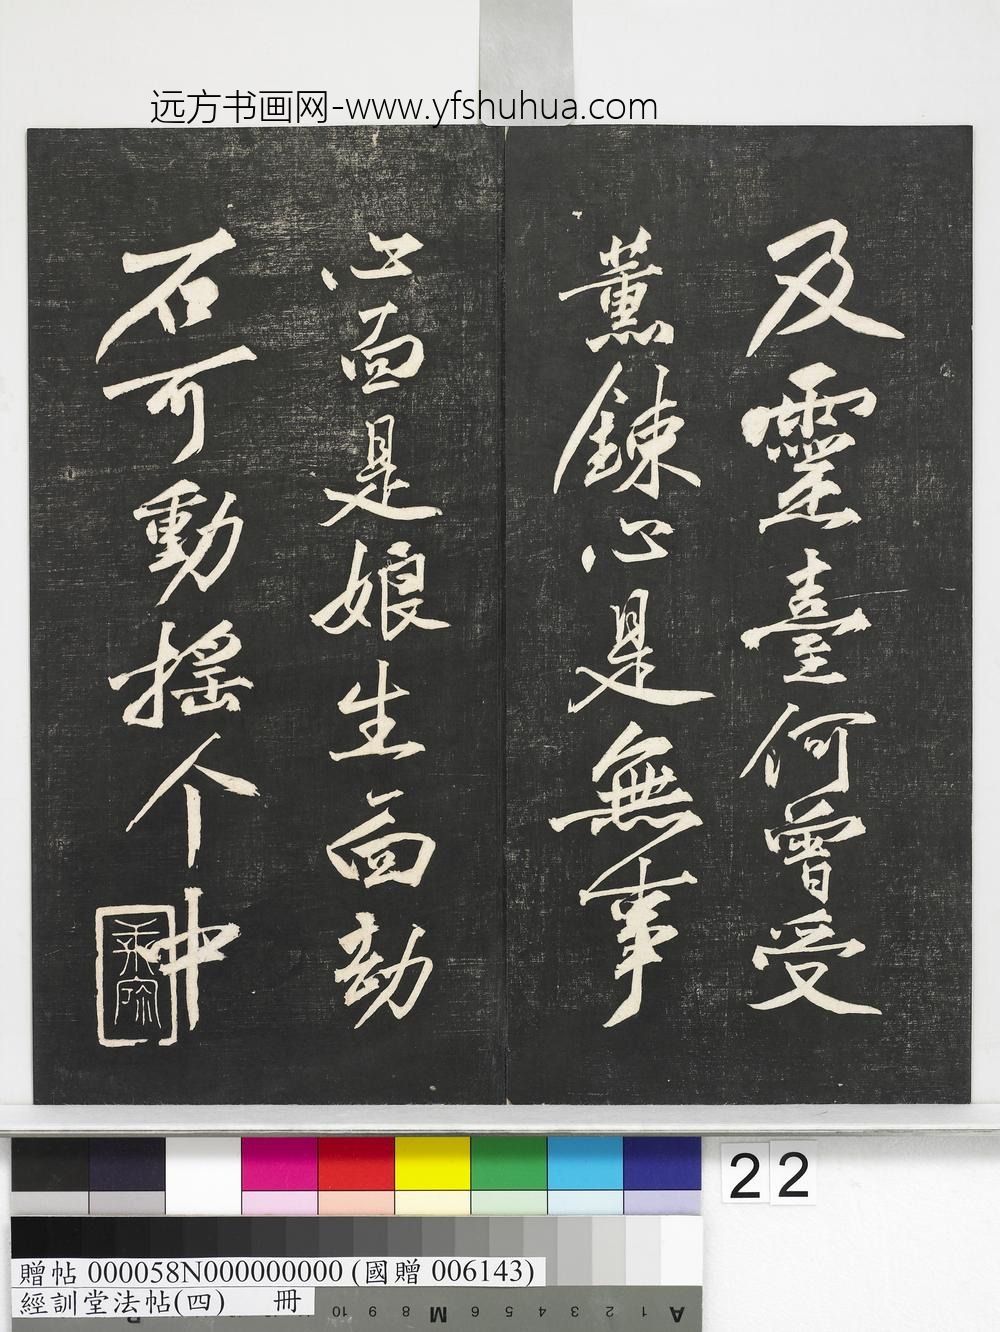 远方书画网-www.yfshuhua.com
及靈臺何曾受
薰鍊心是無事
心面是娘生面劫
石可動搖个中
22
贈帖 000058N000000000 (國贈 006143)
經訓堂法帖(四) 冊
A 1 2 3 4 5 6 M 8 9 10